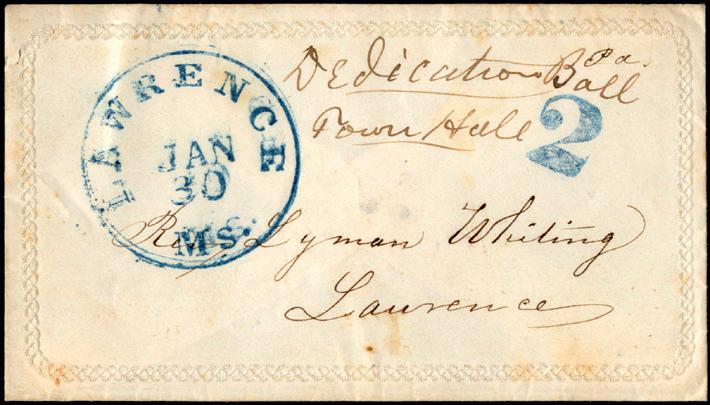 LAWRENCE
JAN
30
Ms.
Dedication Ball
Town Hall
2
Rev. Lyman Whiting
Lawrence